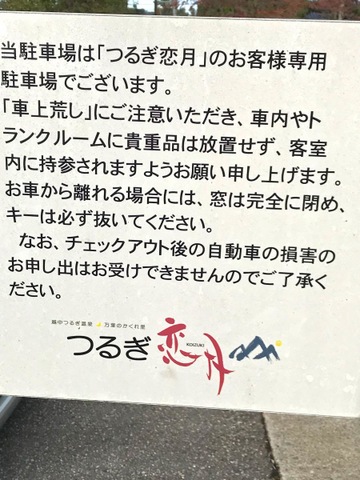 当駐車場は「つるぎ恋月」のお客様専用
駐車場でございます。
「車上荒し」にご注意いただき、車内やト
ランクルームに貴重品は放置せず、客室
内に持参されますようお願い申し上げます。
お車から離れる場合には、窓は完全に閉め、
キーは必ず抜いてください。
なお、チェックアウト後の自動車の損害の
お申し出はお受けできませんのでご了承く
ださい。
越中つるぎ温泉 万葉のかくれ里
つるぎ 恋月
KOIZUKI